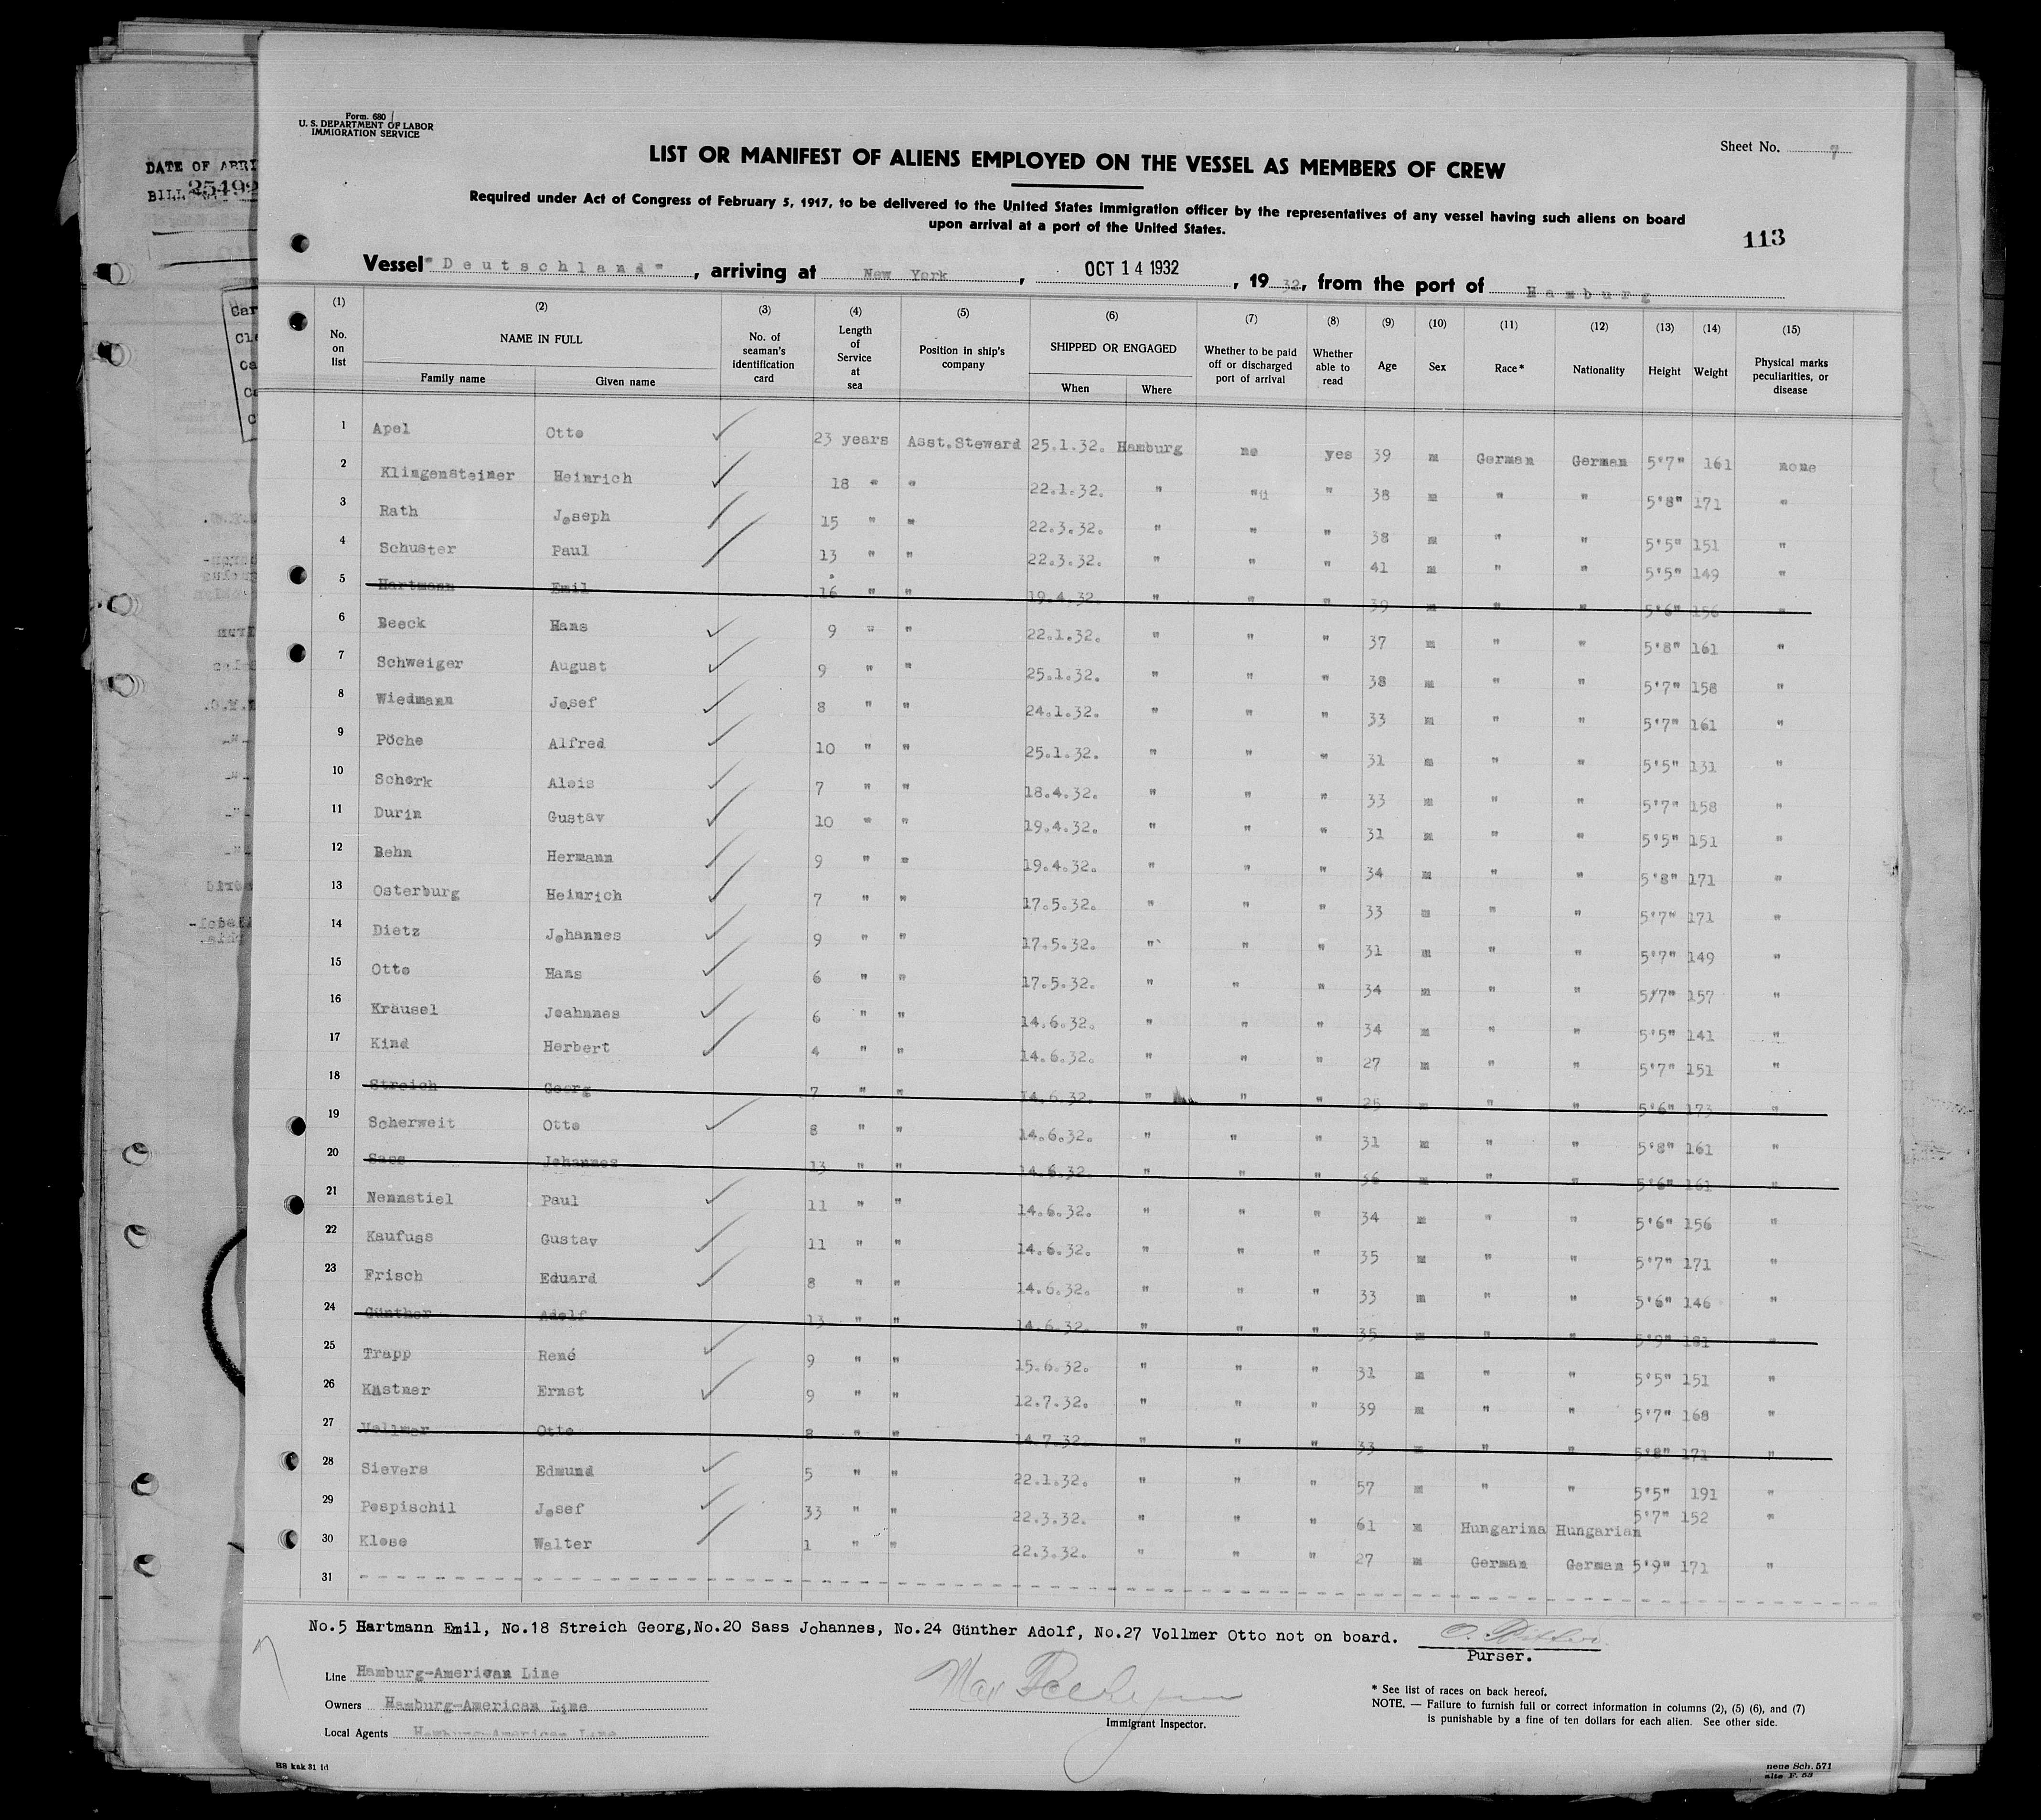 Form. 680
U. S. DEPARTMENT OF LABOR
IMMIGRATION SERVICE
DATE OF ARRI
BILL 25492
Sheet No. 7
LIST OR MANIFEST OF ALIENS EMPLOYED ON THE VESSEL AS MEMBERS OF CREW
Required under Act of Congress of February 5, 1917, to be delivered to the United States immigration officer by the representatives of any vessel having such aliens on board
upon arrival at a port of the United States.
113
Vessel "Deutschland", arriving at New York, OCT 14 1932, 19 32, from the port of Hamburg
(1) (2) (3) (4) (5) (6) (7) (8) (9) (10) (11) (12) (13) (14) (15)
No. on list NAME IN FULL Family name Given name No. of seaman's identification card Length of Service at sea Position in ship's company SHIPPED OR ENGAGED When Where Whether to be paid off or discharged port of arrival Whether able to read Age Sex Race* Nationality Height Weight Physical marks peculiarities, or disease
1 Apel Otto 23 years Asst.Steward 25.1.32. Hamburg no yes 39 m German German 5'7" 161 none
2 Klingensteiner Heinrich 18 " " 22.1.32. " " " 38 m " " 5'8" 171 "
3 Rath Joseph 15 " " 22.3.32. " " " 38 m " " 5'5" 151 "
4 Schuster Paul 13 " " 22.3.32. " " " 41 m " " 5'5" 149 "
5 Hartmann Emil 16 " " 19.4.32. " " " 39 m " " 5'6" 156 "
6 Beeck Hans 9 " " 22.1.32. " " " 37 m " " 5'8" 161 "
7 Schweiger August 9 " " 25.1.32. " " " 38 m " " 5'7" 158 "
8 Wiedmann Josef 8 " " 24.1.32. " " " 33 m " " 5'7" 161 "
9 Pöche Alfred 10 " " 25.1.32. " " " 31 m " " 5'5" 131 "
10 Schork Alois 7 " " 18.4.32. " " " 33 m " " 5'7" 158 "
11 Durin Gustav 10 " " 19.4.32. " " " 31 m " " 5'5" 151 "
12 Rehn Hermann 9 " " 19.4.32. " " " 34 m " " 5'8" 171 "
13 Osterburg Heinrich 7 " " 17.5.32. " " " 33 m " " 5'7" 171 "
14 Dietz Johannes 9 " " 17.5.32. " " " 31 m " " 5'7" 149 "
15 Otto Hans 6 " " 17.5.32. " " " 34 m " " 5'7" 157 "
16 Kräusel Joahnnes 6 " " 14.6.32. " " " 34 m " " 5'5" 141 "
17 Kind Herbert 4 " " 14.6.32. " " " 27 m " " 5'7" 151 "
18 Streich Georg 7 " " 14.6.32. " " " 25 m " " 5'6" 173 "
19 Scherweit Otto 8 " " 14.6.32. " " " 31 m " " 5'8" 161 "
20 Sass Johannes 13 " " 14.6.32. " " " 36 m " " 5'6" 161 "
21 Nennstiel Paul 11 " " 14.6.32. " " " 34 m " " 5'6" 156 "
22 Kaufuss Gustav 11 " " 14.6.32. " " " 35 m " " 5'7" 171 "
23 Frisch Eduard 8 " " 14.6.32. " " " 33 m " " 5'6" 146 "
24 Günther Adolf 13 " " 14.6.32. " " " 35 m " " 5'9" 181 "
25 Trapp René 9 " " 15.6.32. " " " 31 m " " 5'5" 151 "
26 Kästner Ernst 9 " " 12.7.32. " " " 39 m " " 5'7" 168 "
27 Vollmer Otto 8 " " 14.7.32. " " " 33 m " " 5'8" 171 "
28 Sievers Edmund 5 " " 22.1.32. " " " 57 m " " 5'5" 191 "
29 Pospischil Josef 33 " " 22.3.32. " " " 61 m Hungarina Hungarian 5'7" 152 "
30 Klose Walter 1 " " 22.3.32. " " " 27 m German German 5'9" 171 "
31
No.5 Hartmann Emil, No.18 Streich Georg,No.20 Sass Johannes, No.24 Günther Adolf, No.27 Vollmer Otto not on board.
Purser.
Line Hamburg-American Line
Owners Hamburg-American Line
Local Agents Hamburg-American Line
Immigrant Inspector.
* See list of races on back hereof.
NOTE. — Failure to furnish full or correct information in columns (2), (5) (6), and (7)
is punishable by a fine of ten dollars for each alien. See other side.
HS kak 31 fd
neue Sch. 571
alte F. 53